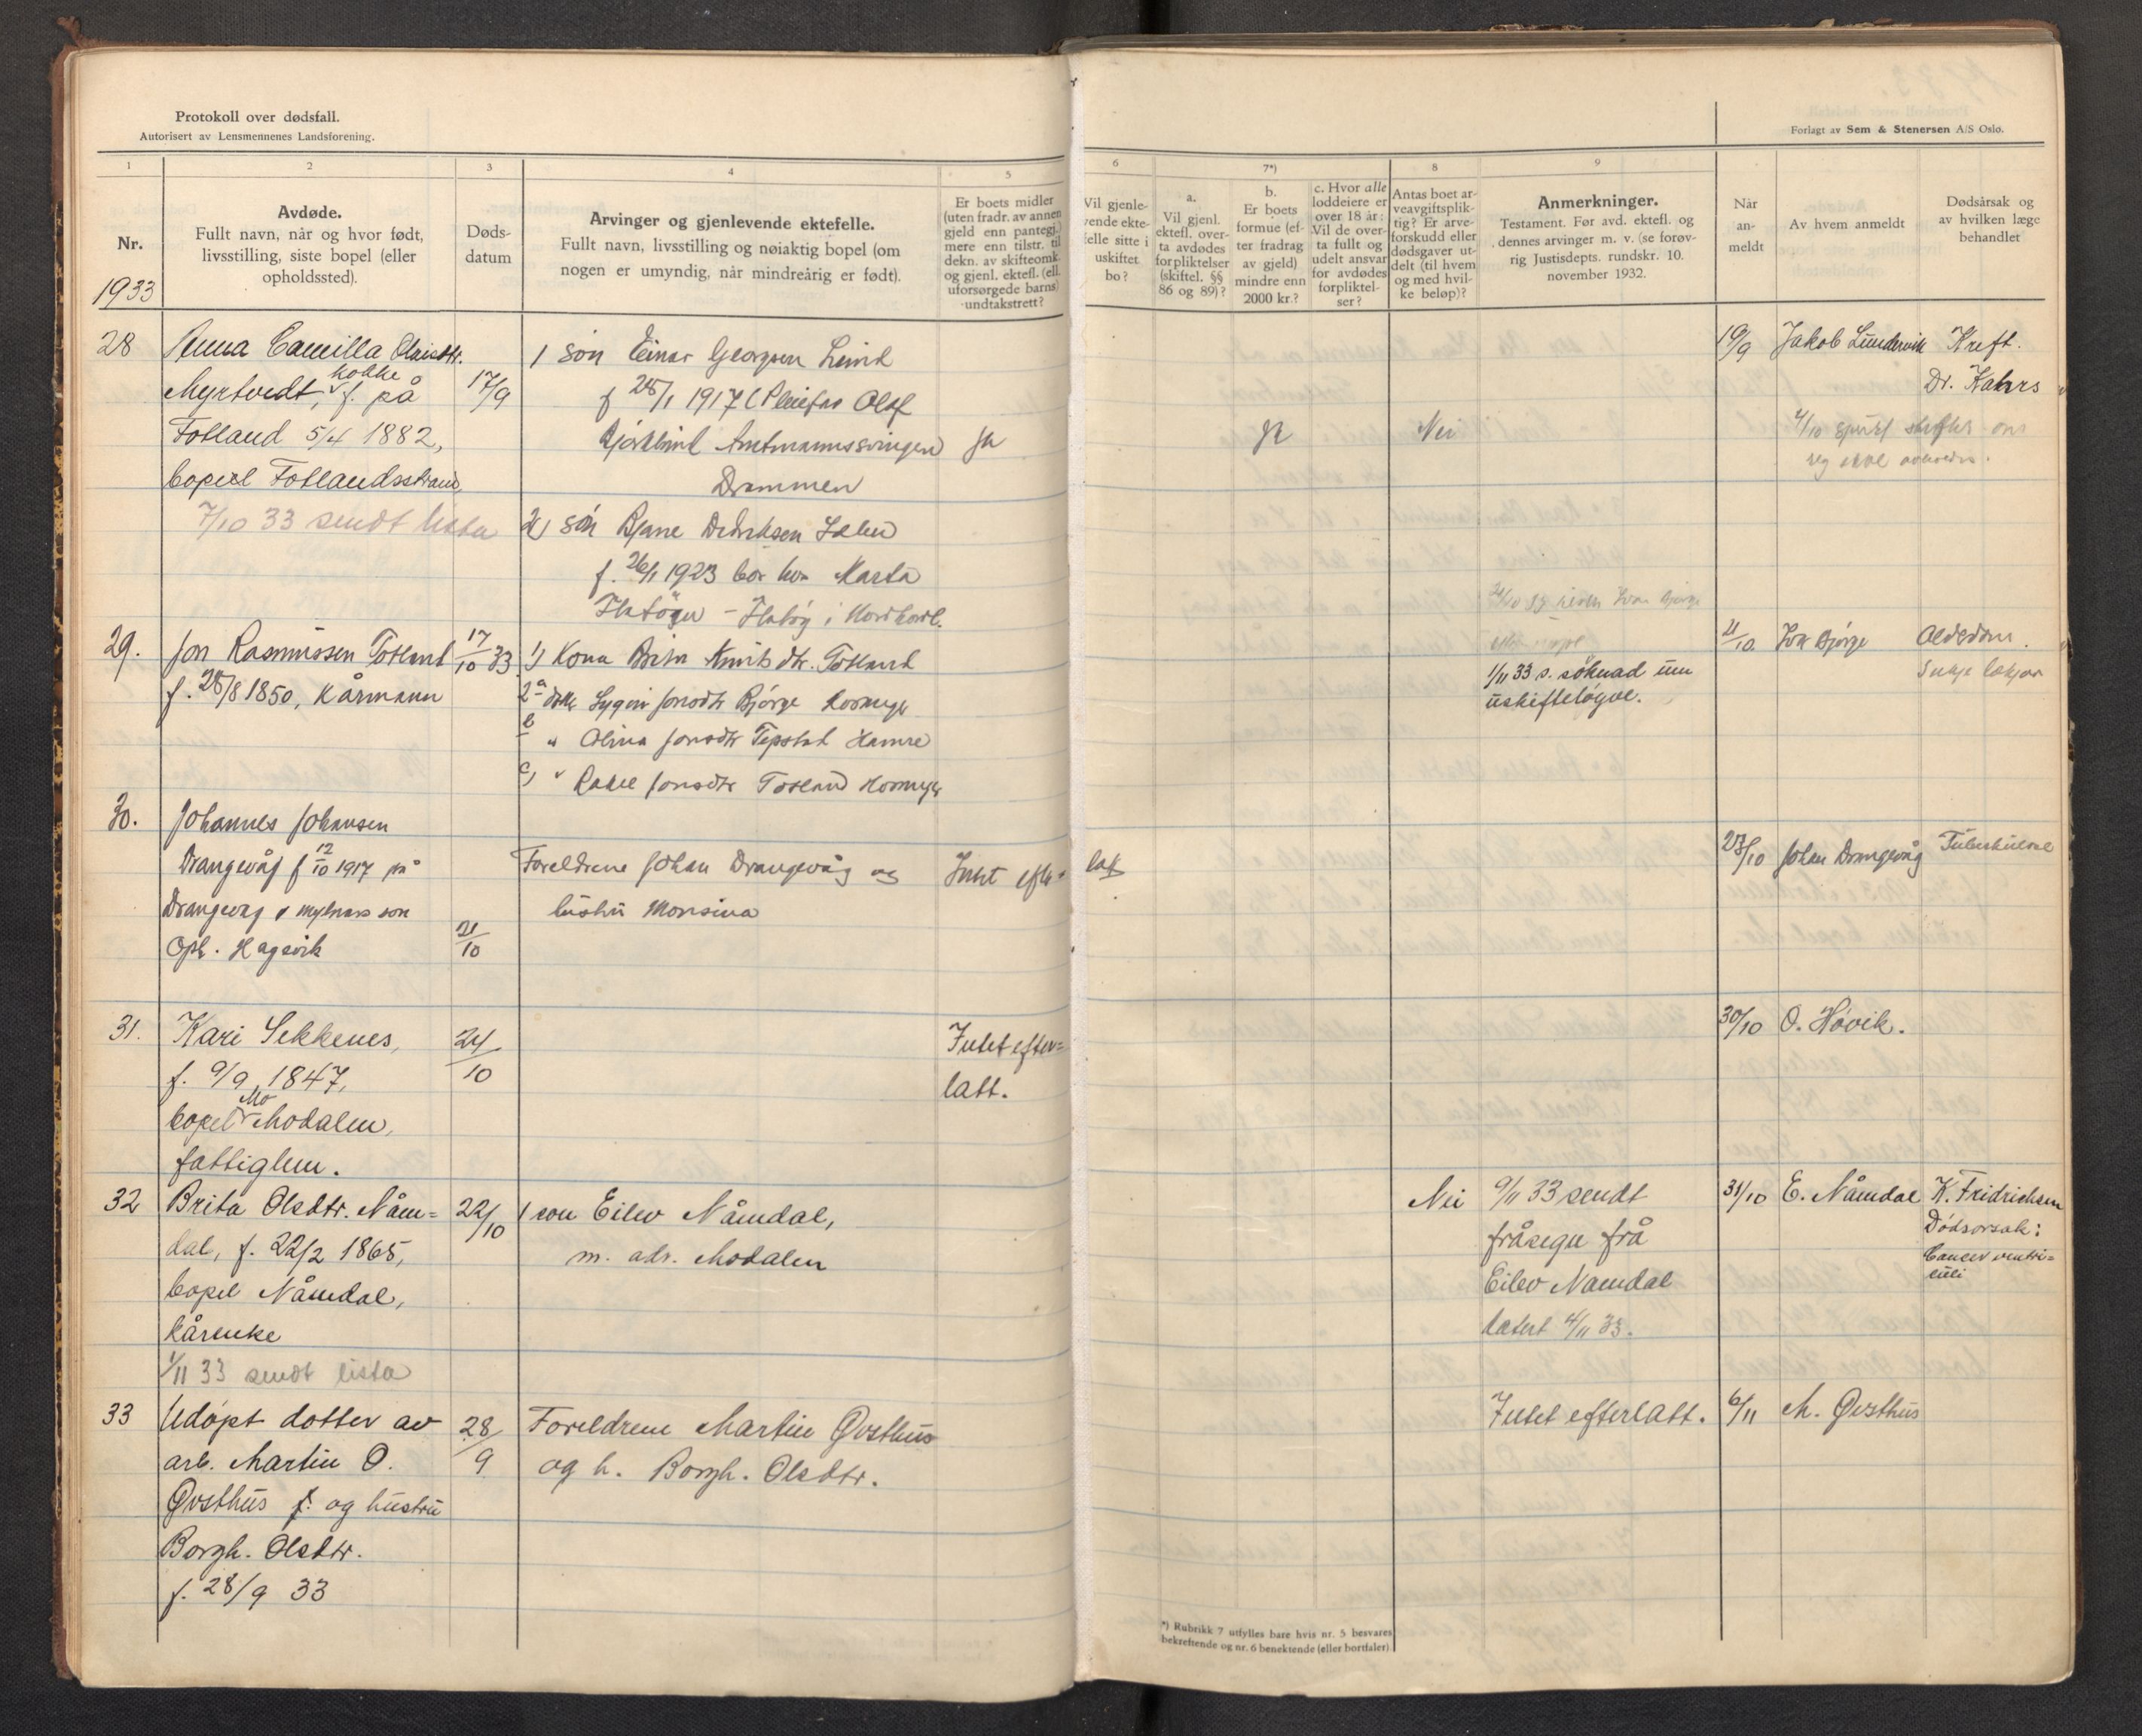 Protokoll over dødsfall.
Autorisert av Lensmennenes Landsforening.
1
2
3
4
5
Nr.
1933
Avdøde.
Fullt navn, når og hvor født,
livsstilling, siste bopel (eller
opholdssted).
Døds-
datum
Arvinger og gjenlevende ektefelle.
Fullt navn, livsstilling og nøiaktig bopel (om
nogen er umyndig, når mindreårig er født).
Er boets midler
(uten fradr. av annen
gjeld enn pantegj.)
mere enn tilstr. til
dekn. av skifteomk.
og gjenl. ektefl. (ell.
uforsørgede barns)
undtakstrett?
28
Anna Camilla Olaisdtr.
Myrtvedt, kokke f. på
Fotland 5/4 1882,
bopel Fotlandsstrand
7/10 33 sendt lista
17/9
1 son Einar Georgsen Lind
f 28/1 1917 (Pleiefar Olaf
Bjørklind Amtmannssvingen
Drammen
Ja
2) son Bjarne Dedriksen
f. 26/1 1923 bor hos Marta
Flatøy i Nordhordl.
29.
Jon Rasmussen Totland
f. 28/8 1850, Kårmann
17/10 33
1) Kona Brita Knutsdtr. Totland
2 a dtr Jonsdtr Bjørge
b " Olina Jonsdtr Hamre
c) " Rakel Jonsdtr Totland
30.
Johannes Johansen
Drangevåg f 12/10 1917 på
Drangevåg
Oph. Hagevik
21/10
Foreldrene Johan Drangevåg og
hustru Monsina
Intet efter-
31.
Kari Sekkenes,
f. 9/9 1847,
bopel Mo Modalen,
fattiglem.
24/10
Intet efter=
latt.
32
Brita Olsdtr. Nåm=
dal, f. 22/2 1865,
bopel Nåmdal,
kårenke
1/11 33 sendt lista
22/10
1 son Eilev Nåmdal,
m. adr. Modalen
33
Udøpt dotter av
arb. Martin O.
Øvsthus f. og hustru
Borgh. Olsdtr.
f. 28/9 33
28/9
Foreldrene Martin Øvsthus
og h. Borgh. Olsdtr.
Forlagt av Sem & Stenersen A/S Oslo.
6
7*)
8
9
Vil gjenle-
vende ekte-
felle sitte i
uskiftet
bo?
a.
Vil gjenl.
ektefl. over-
ta avdødes
forpliktelser
(skiftel. §§
86 og 89)?
b.
Er boets
formue (ef-
ter fradrag
av gjeld)
mindre enn
2000 kr.?
c. Hvor alle
loddeiere er
over 18 år:
Vil de over-
ta fullt og
udelt ansvar
for avdødes
forpliktel-
ser?
Antas boet ar-
veavgiftsplik-
tig? Er arve-
forskudd eller
dødsgaver ut-
delt (til hvem
og med hvil-
ke beløp)?
Anmerkninger.
Testament. Før avd. ektefl. og
dennes arvinger m. v. (se forøv-
rig Justisdepts. rundskr. 10.
november 1932.
Når
an-
meldt
Av hvem anmeldt
Dødsårsak og
av hvilken læge
behandlet
Ja
Nei
19/9
Jakob Lundervik
Kreft.
Dr. Kahrs
1/11 33 s. søknad um
uskifteløyve.
21/10
Bjørge
Alderdom.
latt
23/10
Johan Drangevåg
Tuberkulose
30/10
O. Høvik.
Nei
9/11 33 sendt
fråsegn frå
Eilev Namdal
datert 4/11 33.
31/10
E. Nåmdal
K. Fridrichsen
Dødsorsak:
Cancer ventri=
culi
Intet efterlatt.
6/11
M. Øvsthus
*) Rubrikk 7 utfylles bare hvis nr. 5 besvares
bekreftende og nr. 6 benektende (eller bortfaler)